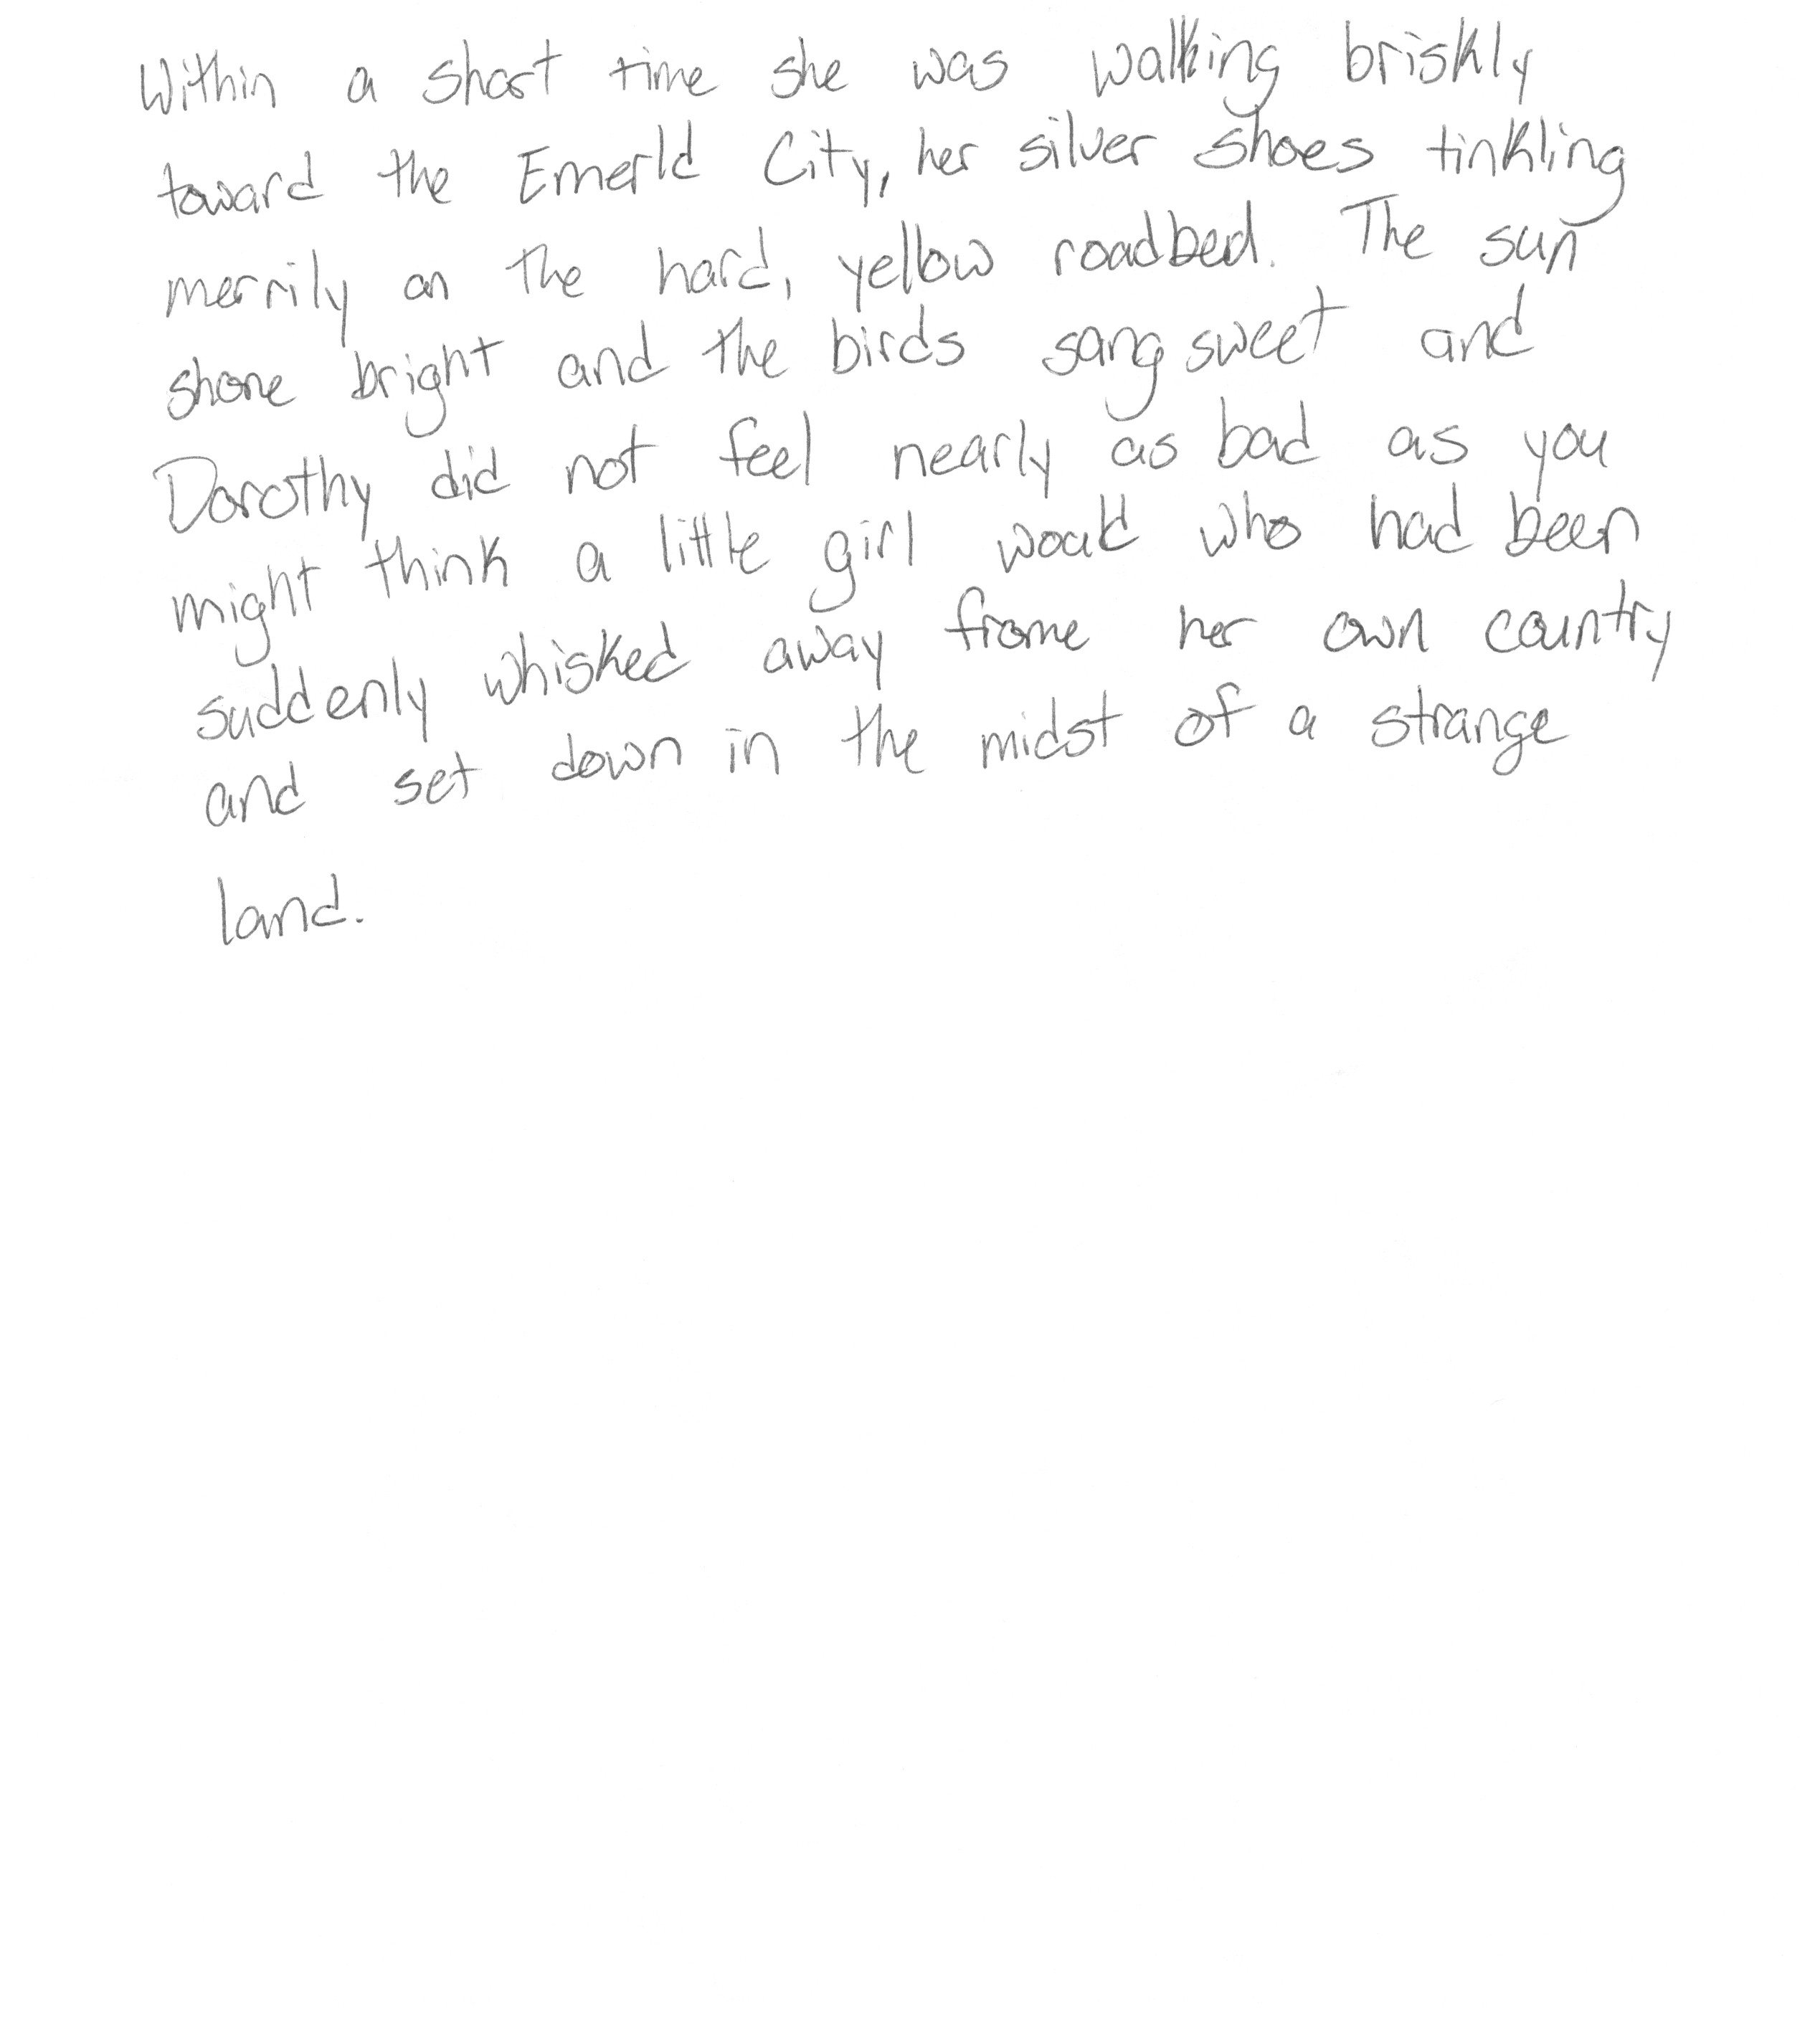 Within a short time she was walking briskly
toward the Emerld City, her silver shoes tinkling
merrily on the hard, yellow roadbed. The sun
shone bright and the birds sang sweet and
Dorothy did not feel nearly as bad as you
might think a little girl would who had been
suddenly whisked away frome her own country
and set down in the midst of a strange
land.